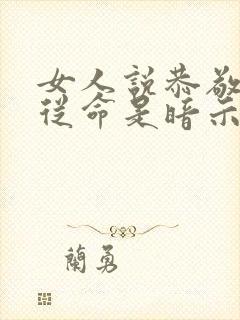 女人說恭敬
從命是暗示
蘭勇